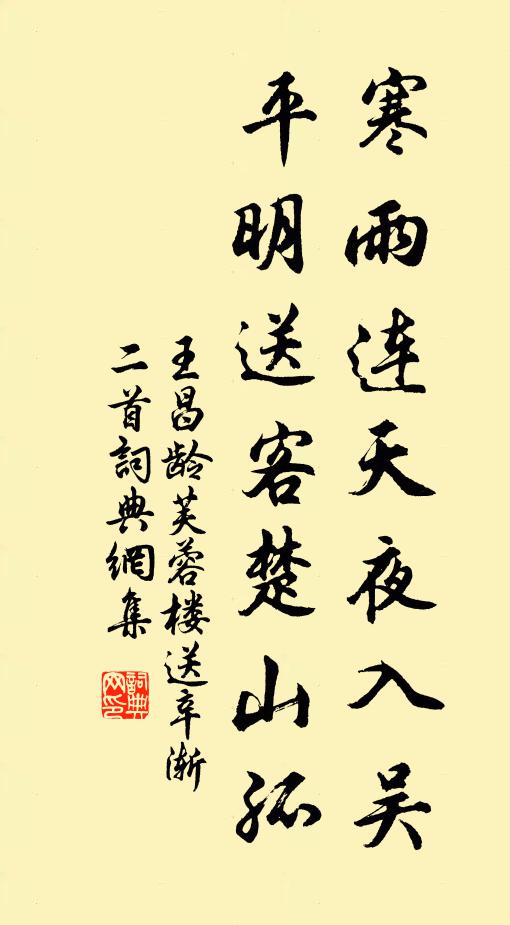 寒雨连天夜入吴
平明送客楚山孤
王昌龄芙蓉楼送辛渐
二首詞典網集
詞典
网印